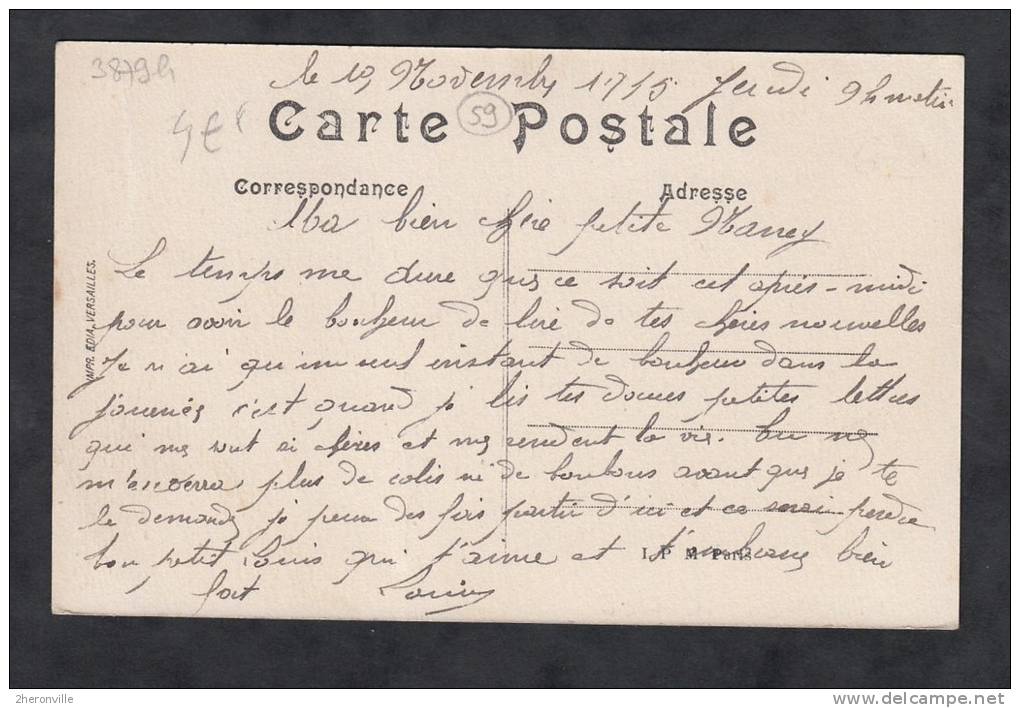 3879h
le 10 Novembre 1915 Jeudi 9h matin
4€
59
Carte Postale
Correspondance
Adresse
Ma bien chère petite Nancy
Le temps me dure que ce soit cet après-midi
pour avoir le bonheur de lire de tes chères nouvelles
Je n'ai qu'un seul instant de bonheur dans la
journée c'est quand je lis tes douces petites lettres
qui me sont si chères et me rendent la vie. tu ne
m'enverra plus de colis ni de bonbons avant que je te
le demande je peux des fois partir d'ici et ce serai perdre
ton petit Louis qui t'aime et t'embrasse bien
fort Louis
IMPR. EDIA, VERSAILLES.
I. P. M. Paris
2heronville
http://www.delcampe.net